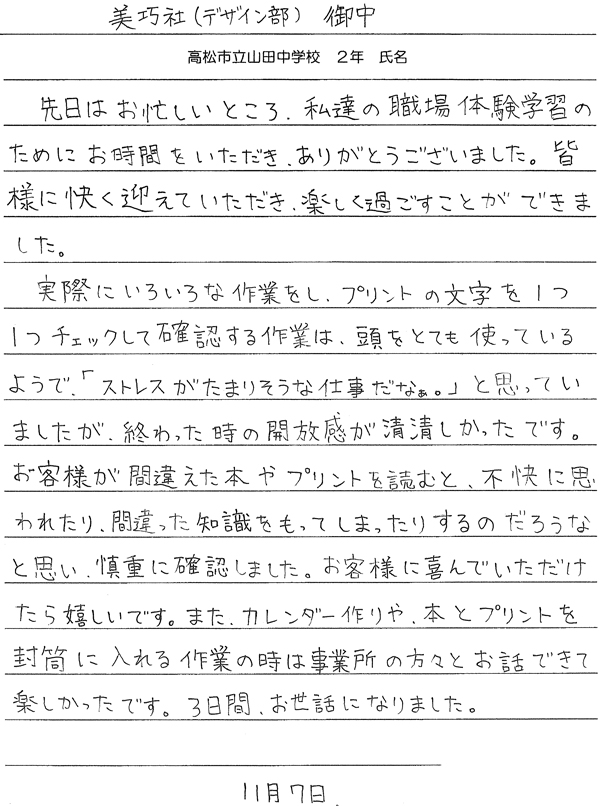 美巧社(デザイン部) 御中
高松市立山田中学校 2年 氏名
先日はお忙しいところ、私達の職場体験学習の
ためにお時間をいただき、ありがとうございました。皆
様に快く迎えていただき、楽しく過ごすことができま
した。
実際にいろいろな作業をし、プリントの文字を1つ
1つチェックして確認する作業は、頭をとても使っている
ようで、「ストレスがたまりそうな仕事だなぁ。」と思ってい
ましたが、終わった時の開放感が清清しかったです。
お客様が間違えた本やプリントを読むと、不快に思
われたり、間違った知識をもってしまったりするのだろうな
と思い、慎重に確認しました。お客様に喜んでいただけ
たら嬉しいです。また、カレンダー作りや、本とプリントを
封筒に入れる作業の時は事業所の方々とお話できて
楽しかったです。3日間、お世話になりました。
11月7日